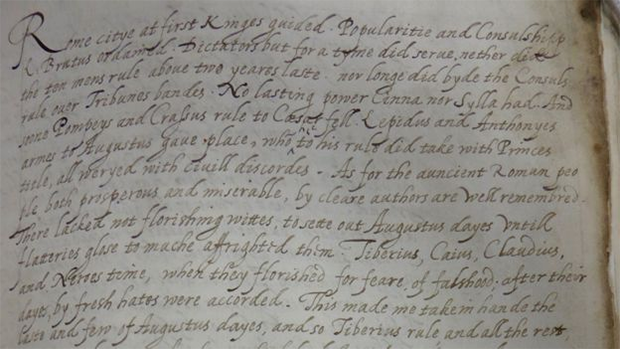 Rome citye at first Kinges guided. Popularitie and Consulshipp
L. Brutus ordained. Dictators but for a tyme did serve, nether did
the ten mens rule above two yeares laste. nor longe did byde the Consuls
rule over Tribunes bandes. No lasting power Cinna nor Sylla had. And
soone Pompeys and Crassus rule to Cæsar fell. Lepidus and Anthonyes
armes to Augustus gave place, who to his rule did take with Princes
titele, all weryed with civill discordes. As for the auncient Roman peo
ple both prosperous and miserable, by cleare authors are well remembred.
There lacked not florishing wittes, to sette out Augustus dayes vntill
flateries glose to muche affrighted them. Tiberius, Caius, Claudius,
and Neroes teme, when they florished for feare, of falshood, after their
dayes, by fresh hates were accorded. This made me take in hande the
laste and few of Augustus dayes, and so Tiberius rule and all the rest,